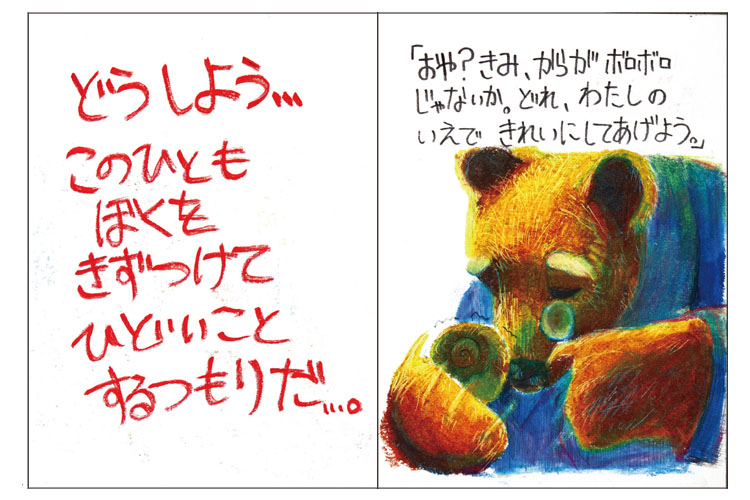 どうしよう...
このひとも
ぼくを
きずつけて
ひどいこと
するつもりだ...。
「おや？きみ、からがボロボロ
じゃないか。どれ、わたしの
いえで きれいにしてあげよう。」